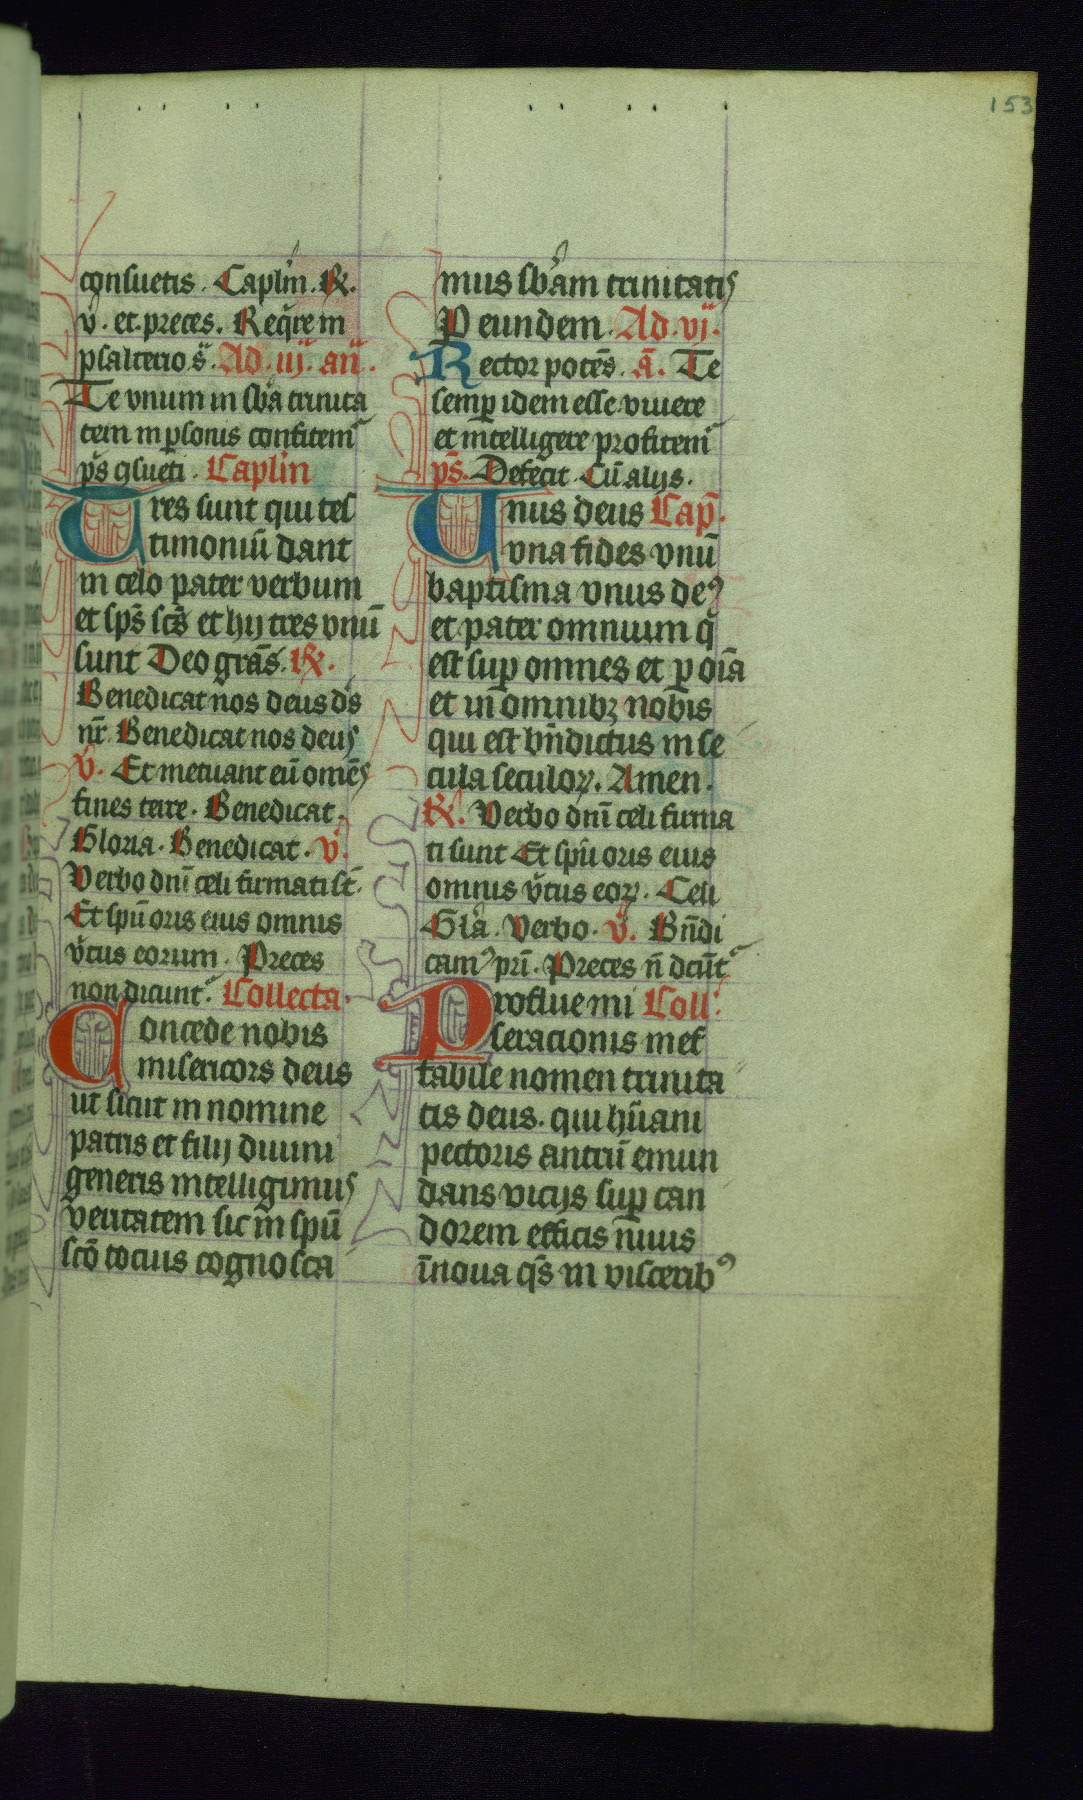 153
consuetis. Caplm̄. R̸.
v̇. et preces. Req̄re in
psalterio s. Ad. iij. an̄.
Te vnum in sb̄a trinita
tem in ꝑsonis confitem
p̄s ꝯsueti. Caplm̄
Tres sunt qui tes
timoniū dant
in celo pater verbum
et sp̄s sc̄s et hij tres vnū
sunt Deo grās. R̸.
Benedicat nos deus d̄s
nr̄. Benedicat nos deus
v̇. Et metuant eū om̄es
fines terre. Benedicat.
Gloria. Benedicat. v̇.
Verbo dn̄i celi firmati st̄.
Et spū oris eius omnis
v̄tus eorum. Preces
non dicunt. Collecta.
Concede nobis
misericors deus
ut sicut in nomine
patris et filij diuini
generis intelligimus
veritatem sic in spū
scō tocius cognosca
mus sb̄am trinitatis
P eundem. Ad. vj.
Rector potēs. ā. Te
semꝑ idem esse viuere
et intelligere profitem
p̄s. Defecit. Cū alijs.
Unus deus Cap̄.
vna fides vnū
baptisma vnus deꝰ
et pater omnium q̄
est suꝑ omnes et ꝑ oīa
et in omnibꝫ nobis
qui est bn̄dictus in se
cula seculoꝝ. Amen.
R̸. Verbo dn̄i celi firma
ti sunt Et spū oris eius
omnis v̄tus eoꝝ. Celi
Glā. Verbo. v̇. Bn̄di
camꝰ prī. Preces n̄ dcūt
Proflue mi Coll.
seracionis mef
fabile nomen trinita
tis deus. qui hūani
pectoris antrū emun
dans vicijs suꝑ can
dorem efficis niuis
īnoua qs̄ in visceribꝰ